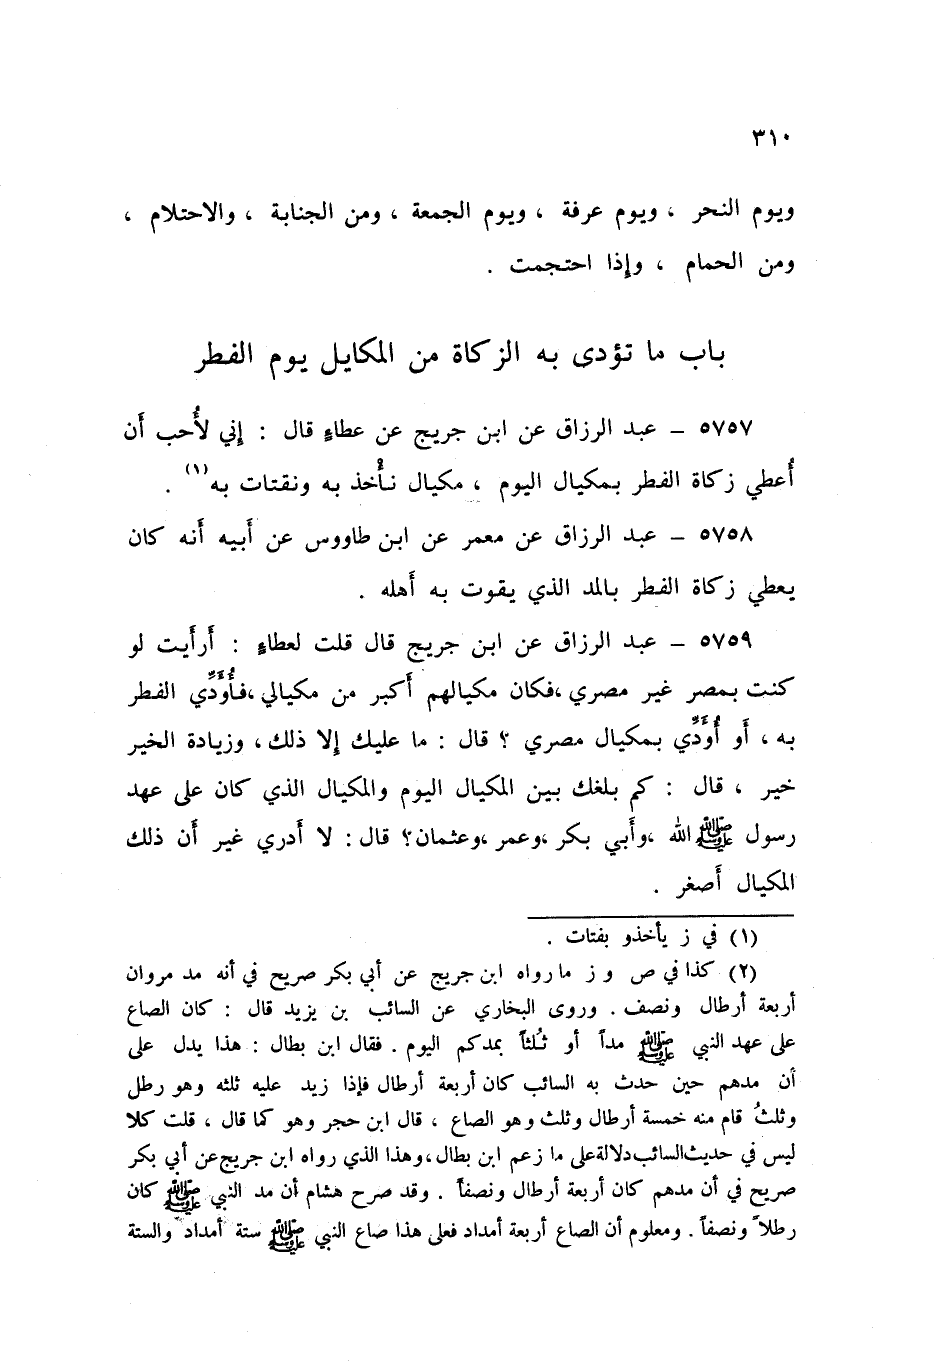 ٣١٠
ويوم النحر ، ويوم عرفة ، ويوم الجمعة ، ومن الجنابة ، والاحتلام ،
ومن الحمام ، وإذا احتجمت .
باب ما تؤدى به الزكاة من المكايل يوم الفطر
٥٧٥٧ – عبد الرزاق عن ابن جريج عن عطاءٍ قال : إني لأُحب أَن
أُعطي زكاة الفطر بمكيال اليوم ، مكيال نأْخذ به ونقتات به (١) .
٥٧٥٨ – عبد الرزاق عن معمر عن ابن طاووس عن أَبيه أَنه كان
يعطي زكاة الفطر بالمد الذي يقوت به أَهله .
٥٧٥٩ – عبد الرزاق عن ابن جريج قال قلت لعطاءٍ : أَرأَيت لو
كنت بمصر غير مصري ،فكان مكيالهم أَكبر من مكيالي ،فأُؤَدِّي الفطر
به ، أَو أُؤَدِّي بمكيال مصري ؟ قال : ما عليك إلا ذلك ، وزيادة الخير
خير ، قال : كم بلغك بين المكيال اليوم والمكيال الذي كان على عهد
رسول ﷺ الله ،وأَبي بكر ،وعمر ،وعثمان؟ قال : لا أَدري غير أَن ذلك
المكيال أَصغر .
(١) في ز يأخذو بفتات .
(٢) كذا في ص و ز ما رواه ابن جريج عن أبي بكر صريح في أنه مد مروان
أربعة أرطال ونصف . وروى البخاري عن السائب بن يزيد قال : كان الصاع
على عهد النبي ﷺ مداً أو ثُلثاً بمدكم اليوم . فقال ابن بطال : هذا يدل على
أن مدهم حين حدث به السائب كان أربعة أرطال فإذا زيد عليه ثلثه وهو رطل
وثلثُ قام منه خمسة أرطال وثلث وهو الصاع ، قال ابن حجر وهو كما قال ، قلت كلا
ليس في حديث السائب دلالة على ما زعم ابن بطال ،وهذا الذي رواه ابن جريج عن أبي بكر
صريح في أن مدهم كان أربعة أرطال ونصفاً . وقد صرح هشام أن مد النبي ﷺ كان
رطلاً ونصفاً . ومعلوم أن الصاع أربعة أمداد فعلى هذا صاع النبي ﷺ ستة أمداد والستة